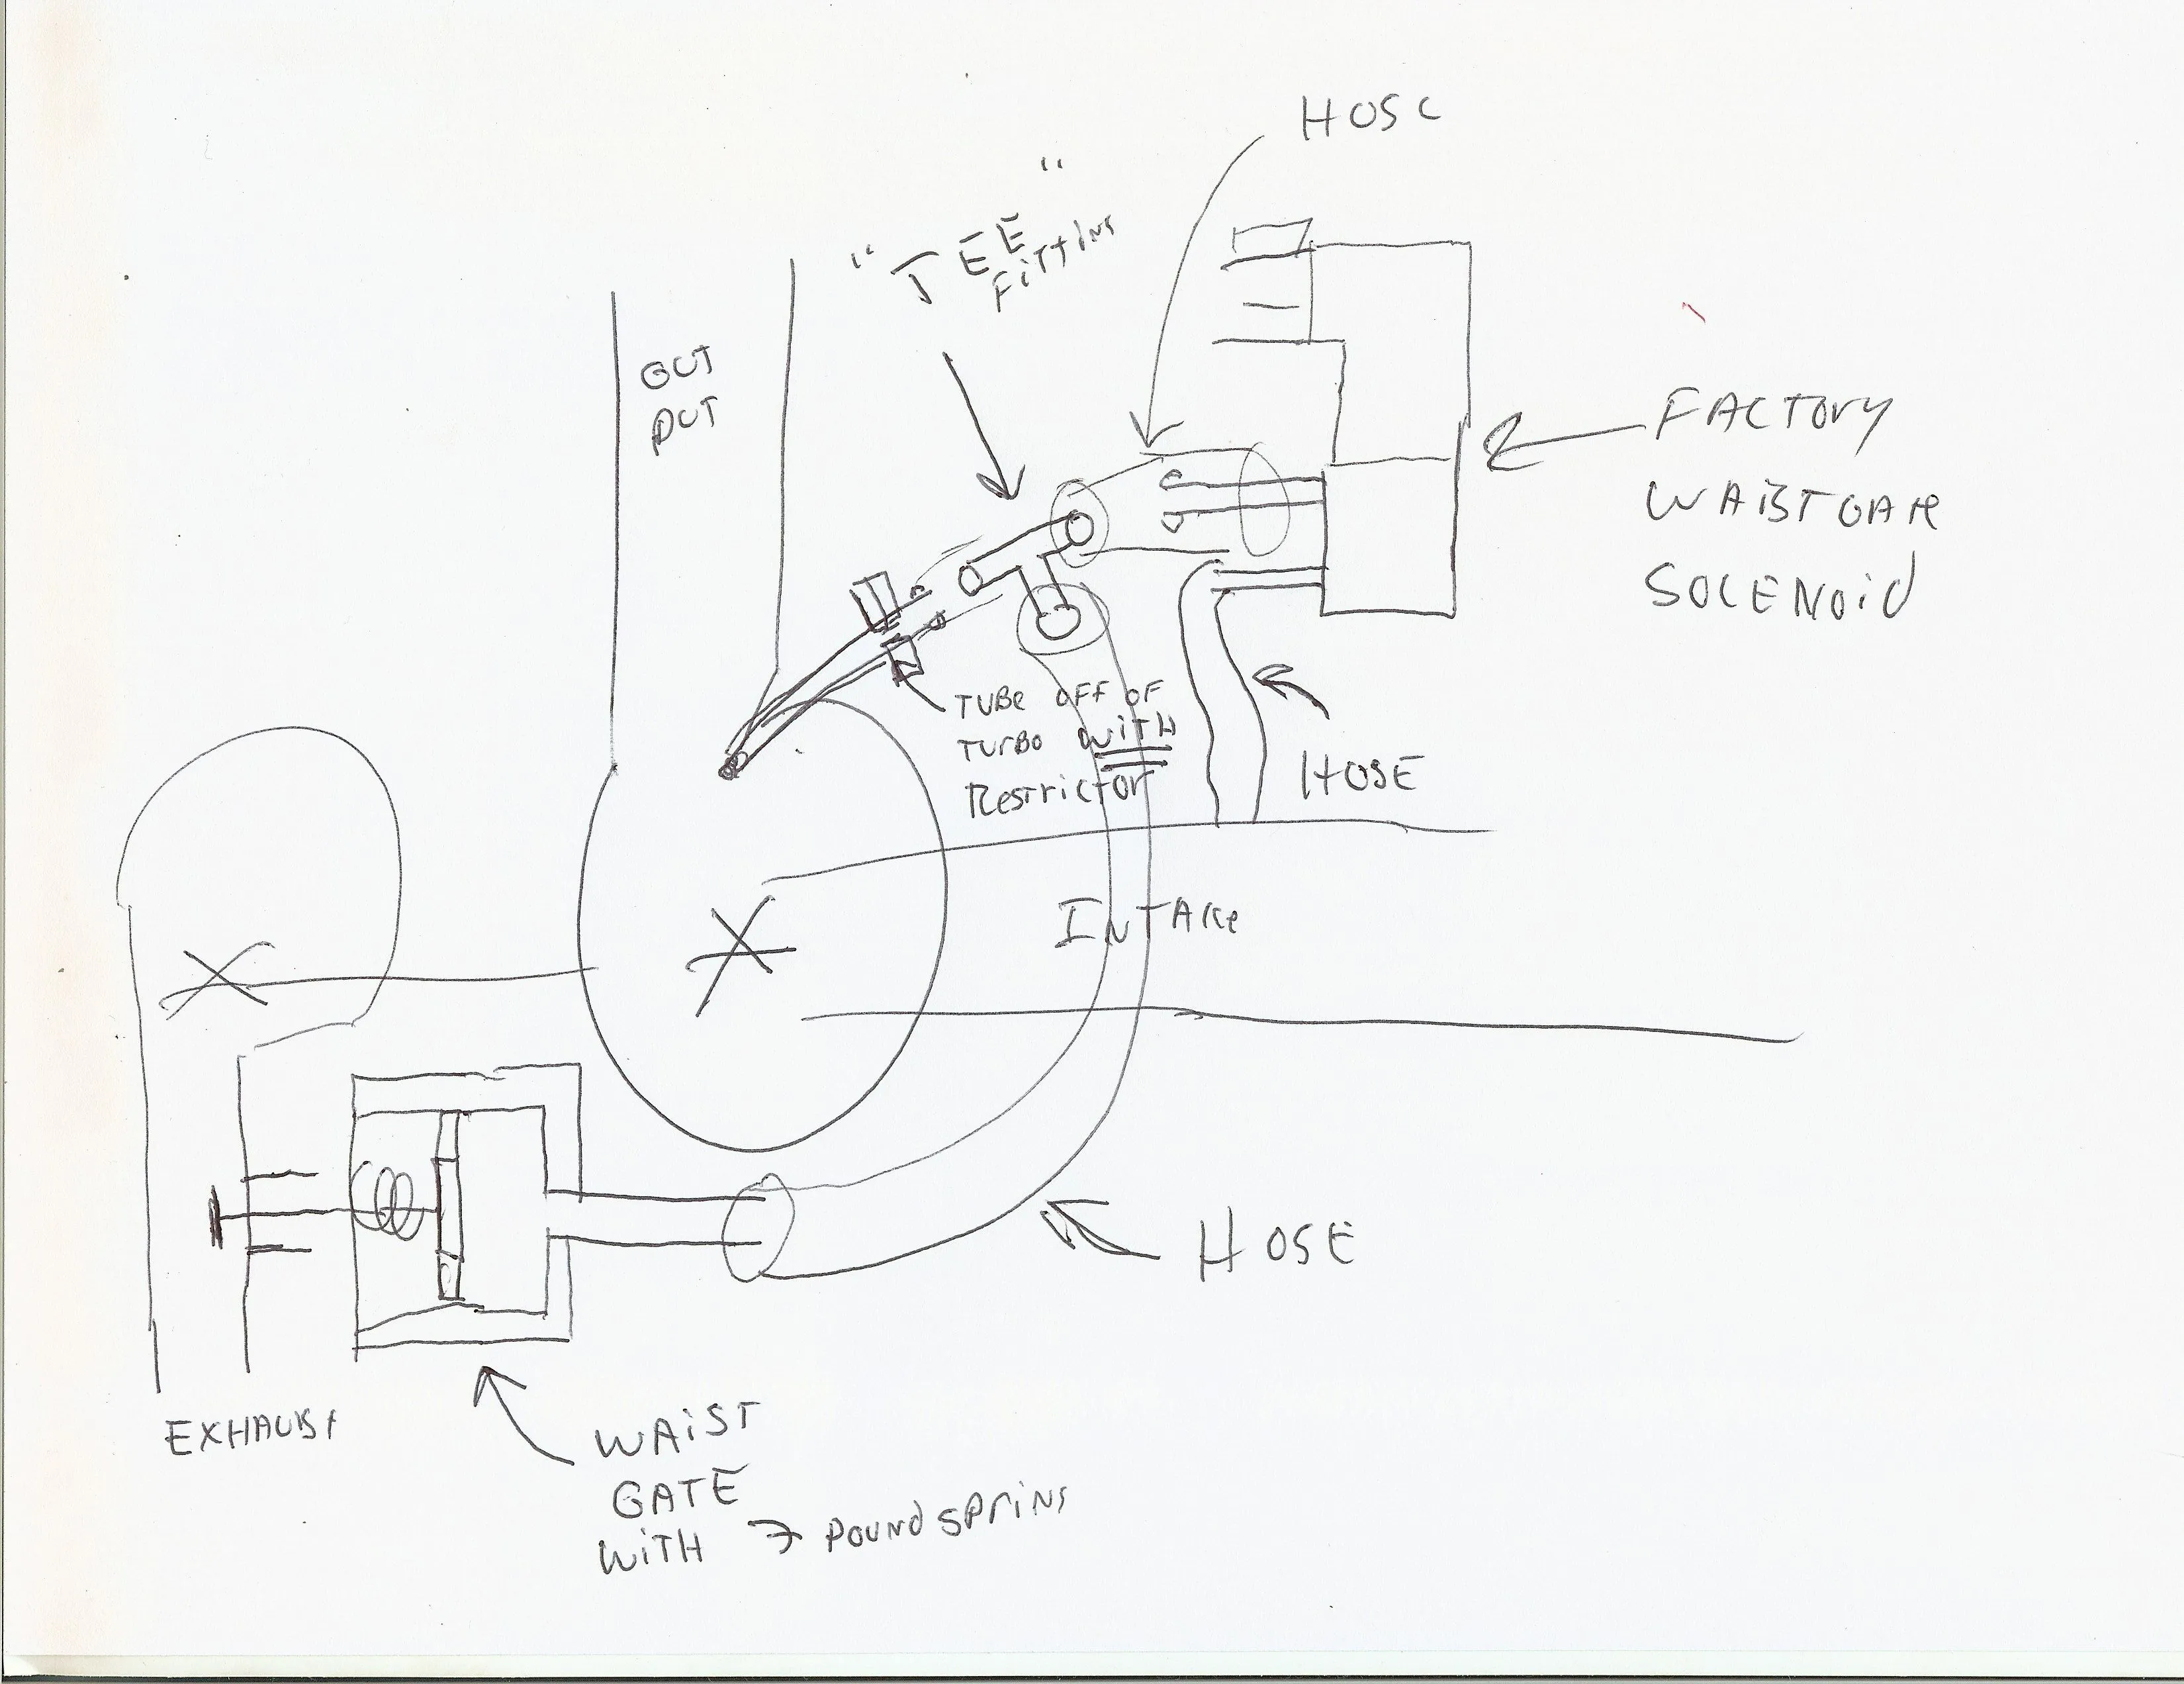 HOSC
"TEE"
FITTING
OUT
PUT
FACTORY
WAISTGATE
SOLENOID
TUBE OFF OF
TURBO WITH
RESTRICTOR
HOSE
INTAKE
HOSE
EXHAUST
WAIST
GATE
WITH 7 POUND SPRING